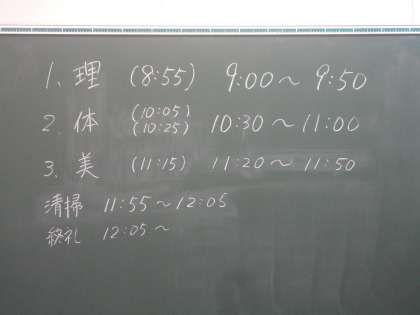 1. 理 (8:55) 9:00〜9:50
2. 体 (10:05) (10:25) 10:30〜11:00
3. 美 (11:15) 11:20〜11:50
清掃 11:55〜12:05
終礼 12:05〜